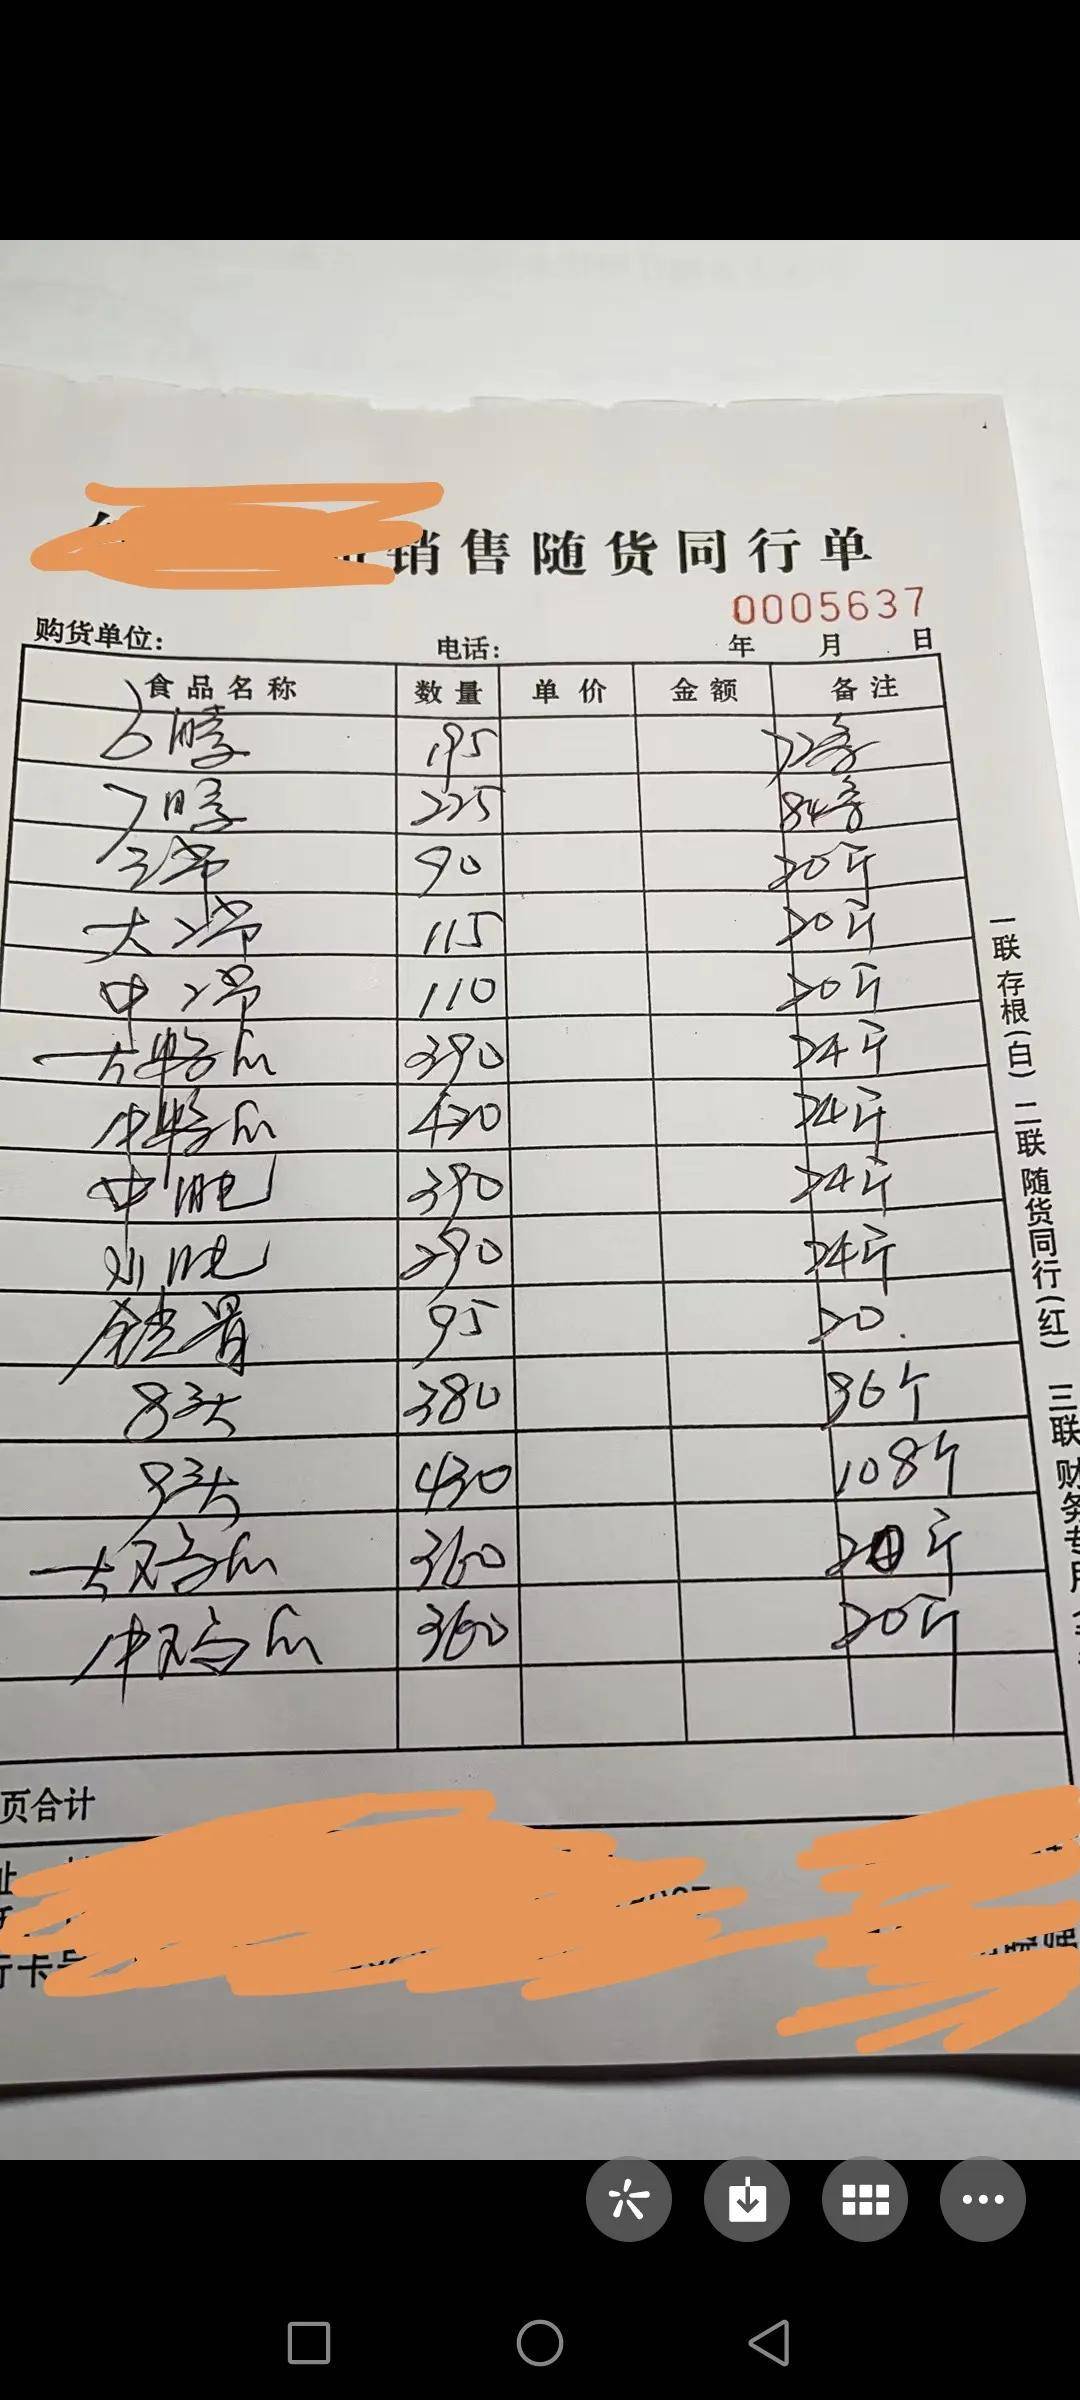 销售随货同行单
0005637
购货单位: 电话: 年 月 日
食品名称 数量 单价 金额 备注
6 195 72
7 225 84
三节 90 20斤
大2节 115 20斤
中2节 110 20斤
大鸭爪 390 24斤
中鸭爪 420 24斤
中 390 24斤
小 290 24斤
锁骨 95 20.
8头 380 96个
9头 430 108个
大鸡爪 360 20斤
中鸡爪 360 20斤
页合计
一联存根(白) 二联随货同行(红) 三联财务专用